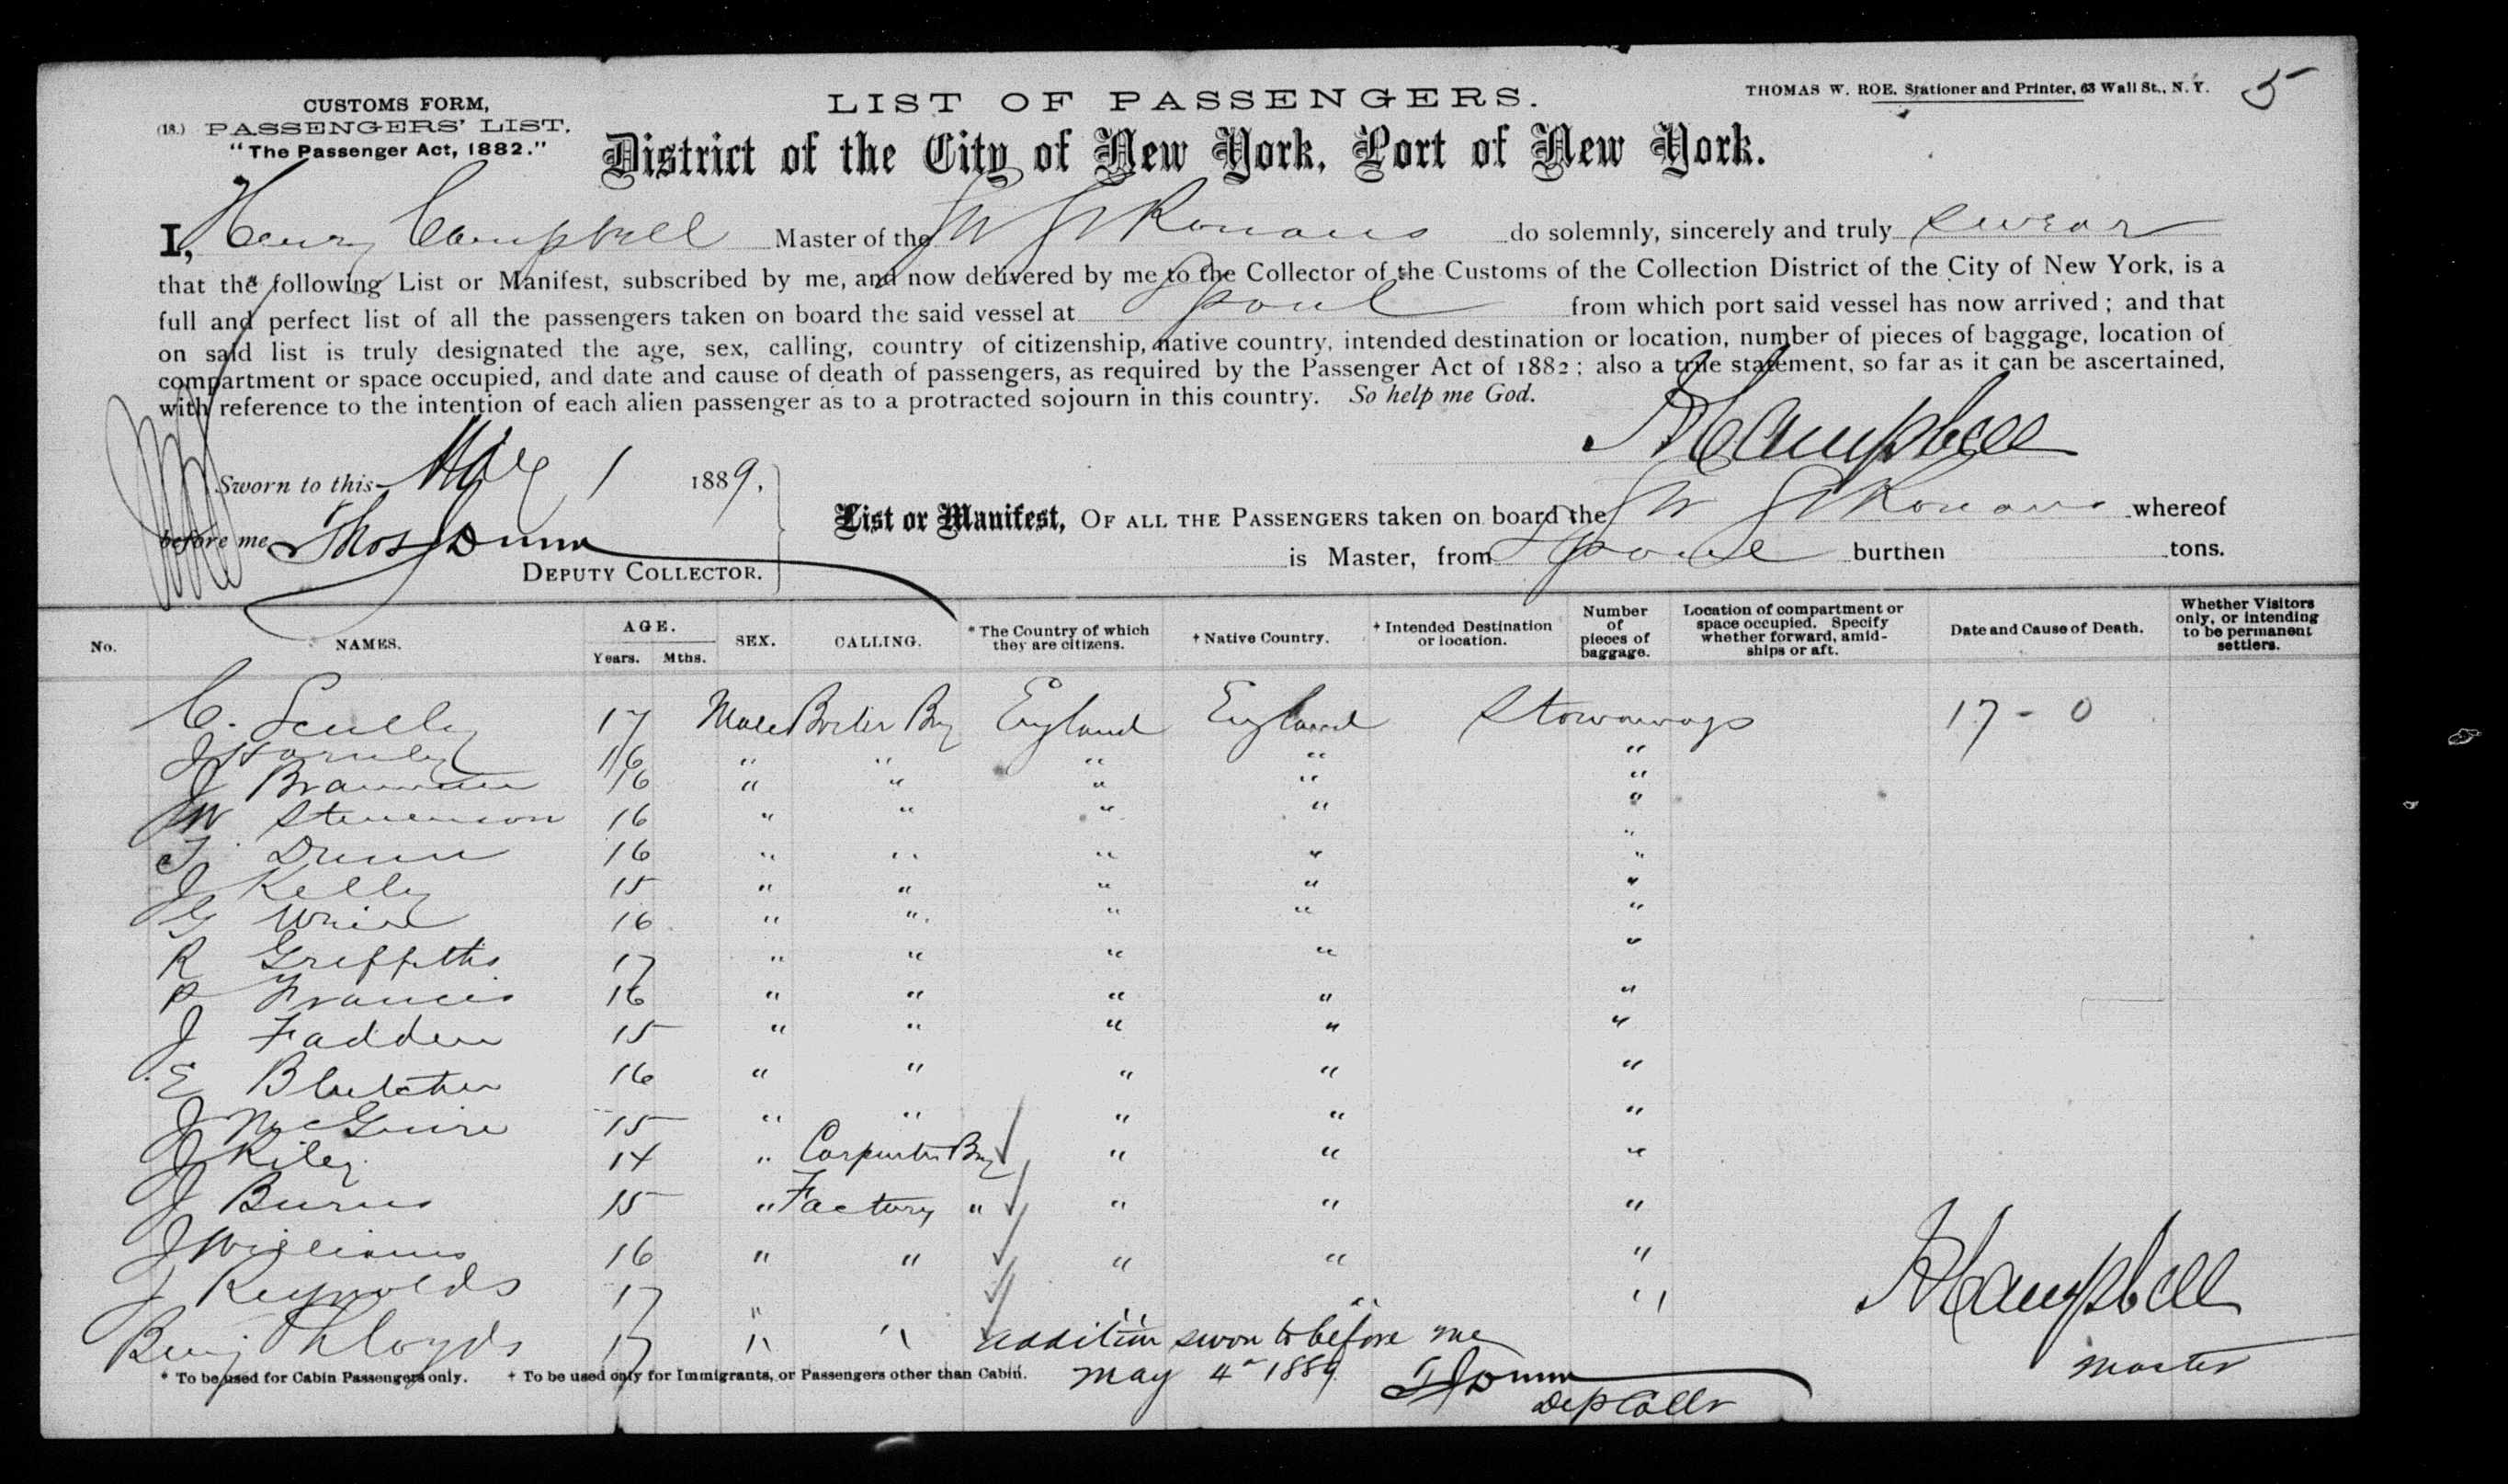 5
CUSTOMS FORM,
(18.) PASSENGERS' LIST.
"The Passenger Act, 1882."
LIST OF PASSENGERS.
THOMAS W. ROE, Stationer and Printer, 63 Wall St., N. Y.
District of the City of New York, Port of New York.
I, Henry Campbell Master of the do solemnly, sincerely and truly swear
that the following List or Manifest, subscribed by me, and now delivered by me to the Collector of the Customs of the Collection District of the City of New York, is a
full and perfect list of all the passengers taken on board the said vessel at from which port said vessel has now arrived; and that
on said list is truly designated the age, sex, calling, country of citizenship, native country, intended destination or location, number of pieces of baggage, location of
compartment or space occupied, and date and cause of death of passengers, as required by the Passenger Act of 1882; also a true statement, so far as it can be ascertained,
with reference to the intention of each alien passenger as to a protracted sojourn in this country. So help me God.
H Campbell
Sworn to this May 1 1889,
before me Thos J Dunn
DEPUTY COLLECTOR.
List or Manifest, OF ALL THE PASSENGERS taken on board the whereof
is Master, from burthen tons.
No. NAMES. AGE. Years. Mths. SEX. CALLING. * The Country of which they are citizens. † Native Country. † Intended Destination or location. Number of pieces of baggage. Location of compartment or space occupied. Specify whether forward, amidships or aft. Date and Cause of Death. Whether Visitors only, or intending to be permanent settlers.
C. Scully 17 Male Boiler Boy England England Stowaways 17 - 0
J Hornley 16 " " " " "
J Brannan 16 " " " " "
W Stevenson 16 " " " " "
T Dunn 16 " " " " "
J Kelly 15 " " " " "
G 16 " " " " "
R Griffiths 17 " " " " "
P Francis 16 " " " " "
J Fadden 15 " " " " "
E 16 " " " " "
J McGuire 15 " " " " "
J Riley 14 " Carpenter Boy " " "
J Burns 15 " Factory " " " "
J Williams 16 " " " " "
J Reynolds 17 " " " " "
Benj Lloyds 17 " "
addition sworn to before me
May 4 1889
T J Dunn
Dep Collr
H Campbell
Master
* To be used for Cabin Passengers only. † To be used only for Immigrants, or Passengers other than Cabin.